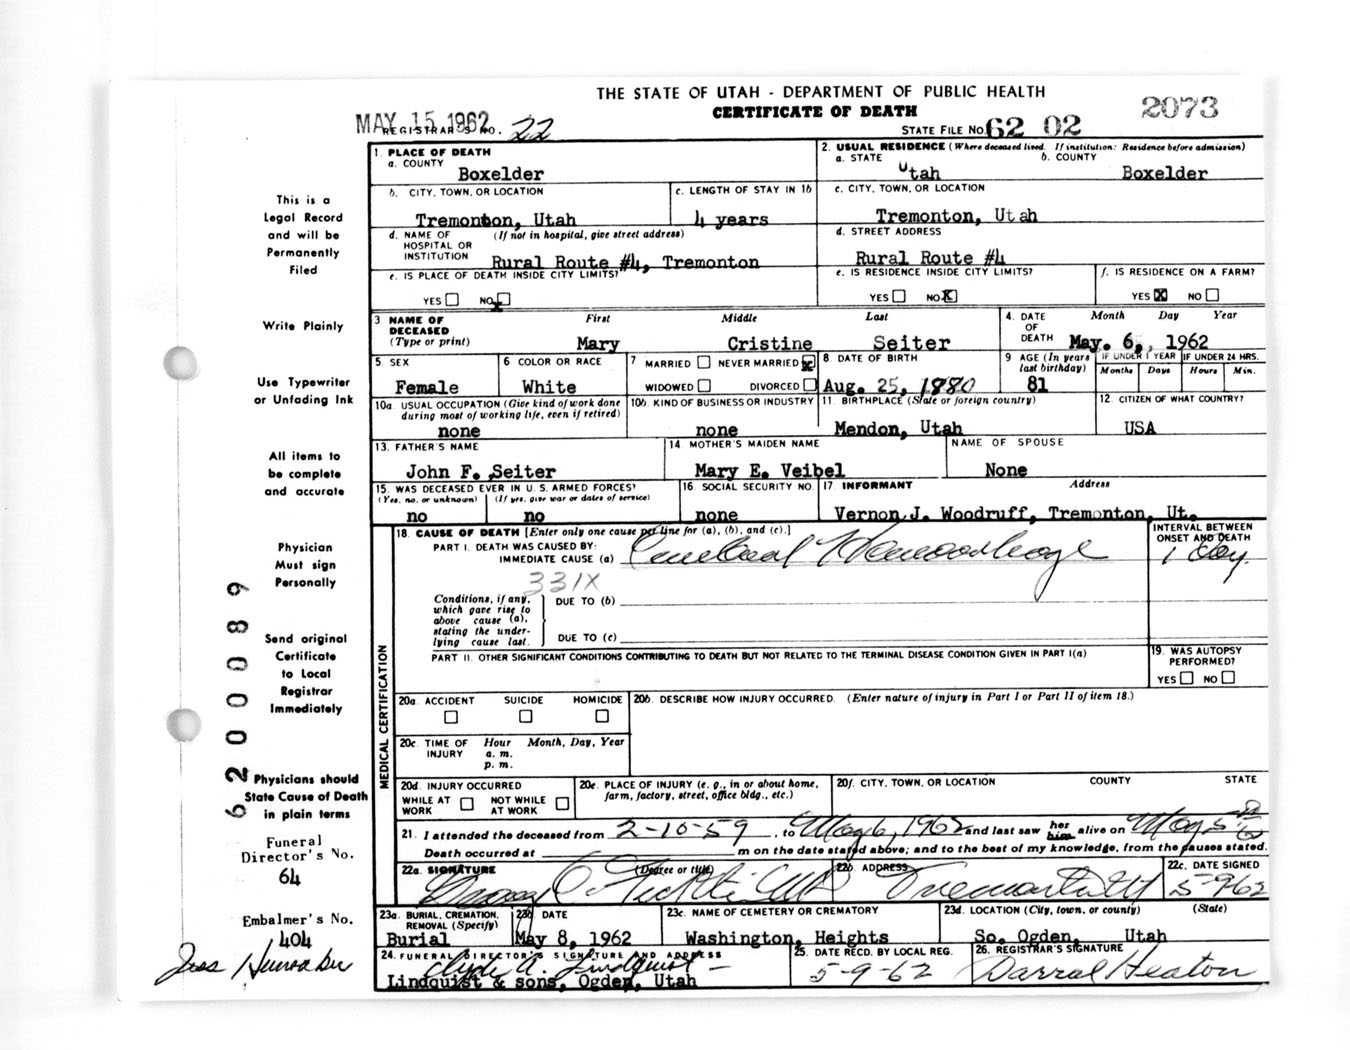 THE STATE OF UTAH - DEPARTMENT OF PUBLIC HEALTH
CERTIFICATE OF DEATH
2073
MAY 15 1962
REGISTRAR'S NO. 22
STATE FILE No. 62 02
This is a
Legal Record
and will be
Permanently
Filed
Write Plainly
Use Typewriter
or Unfading Ink
All items to
be complete
and accurate
Physician
Must sign
Personally
Send original
Certificate
to Local
Registrar
Immediately
Physicians should
State Cause of Death
in plain terms
Funeral
Director's No.
64
Embalmer's No.
404
62 0 0 0 8 9
1. PLACE OF DEATH
a. COUNTY
Boxelder
2. USUAL RESIDENCE (Where deceased lived. If institution: Residence before admission)
a. STATE b. COUNTY
Utah Boxelder
b. CITY, TOWN, OR LOCATION
Tremonton, Utah
c. LENGTH OF STAY IN 1b
4 years
c. CITY, TOWN, OR LOCATION
Tremonton, Utah
d. NAME OF (If not in hospital, give street address)
HOSPITAL OR
INSTITUTION Rural Route #4, Tremonton
d. STREET ADDRESS
Rural Route #4
e. IS PLACE OF DEATH INSIDE CITY LIMITS?
YES NO x
e. IS RESIDENCE INSIDE CITY LIMITS?
YES NO X
f. IS RESIDENCE ON A FARM?
YES X NO
3. NAME OF First Middle Last
DECEASED
(Type or print) Mary Cristine Seiter
4. DATE Month Day Year
OF
DEATH May. 6, 1962
5. SEX
Female
6. COLOR OR RACE
White
7. MARRIED NEVER MARRIED x
WIDOWED DIVORCED
8. DATE OF BIRTH
Aug. 25, 1880
9. AGE (In years
last birthday)
81
IF UNDER 1 YEAR IF UNDER 24 HRS.
Months Days Hours Min.
10a. USUAL OCCUPATION (Give kind of work done
during most of working life, even if retired)
none
10b. KIND OF BUSINESS OR INDUSTRY
none
11. BIRTHPLACE (State or foreign country)
Mendon, Utah
12. CITIZEN OF WHAT COUNTRY?
USA
13. FATHER'S NAME
John F. Seiter
14. MOTHER'S MAIDEN NAME
Mary E. Veibel
NAME OF SPOUSE
None
15. WAS DECEASED EVER IN U. S. ARMED FORCES?
(Yes, no, or unknown) (If yes, give war or dates of service)
no no
16. SOCIAL SECURITY NO.
none
17. INFORMANT Address
Vernon J. Woodruff, Tremonton, Ut.
MEDICAL CERTIFICATION
18. CAUSE OF DEATH [Enter only one cause per line for (a), (b), and (c).]
PART I. DEATH WAS CAUSED BY:
IMMEDIATE CAUSE (a) Cerebral Hemorrhage
INTERVAL BETWEEN
ONSET AND DEATH
1 day.
331X
Conditions, if any,
which gave rise to
above cause (a),
stating the under-
lying cause last.
DUE TO (b)
DUE TO (c)
PART II. OTHER SIGNIFICANT CONDITIONS CONTRIBUTING TO DEATH BUT NOT RELATED TO THE TERMINAL DISEASE CONDITION GIVEN IN PART I(a)
19. WAS AUTOPSY
PERFORMED?
YES NO
20a. ACCIDENT SUICIDE HOMICIDE
20b. DESCRIBE HOW INJURY OCCURRED. (Enter nature of injury in Part I or Part II of item 18.)
20c. TIME OF Hour Month, Day, Year
INJURY a. m.
p. m.
20d. INJURY OCCURRED
WHILE AT NOT WHILE
WORK AT WORK
20e. PLACE OF INJURY (e. g., in or about home,
farm, factory, street, office bldg., etc.)
20f. CITY, TOWN, OR LOCATION COUNTY STATE
21. I attended the deceased from 2-10-59, to May 6, 1962 and last saw her him alive on May 5
Death occurred at m on the date stated above; and to the best of my knowledge, from the causes stated.
22a. SIGNATURE (Degree or title)
22b. ADDRESS
Tremonton Ut
22c. DATE SIGNED
5-9-62
23a. BURIAL, CREMATION,
REMOVAL (Specify)
Burial
23b. DATE
May 8, 1962
23c. NAME OF CEMETERY OR CREMATORY
Washington, Heights
23d. LOCATION (City, town, or county) (State)
So. Ogden, Utah
24. FUNERAL DIRECTOR'S SIGNATURE AND ADDRESS
Clyde A. Lindquist
Lindquist & sons, Ogden, Utah
25. DATE RECD. BY LOCAL REG.
5-9-62
26. REGISTRAR'S SIGNATURE
Darrel Heaton